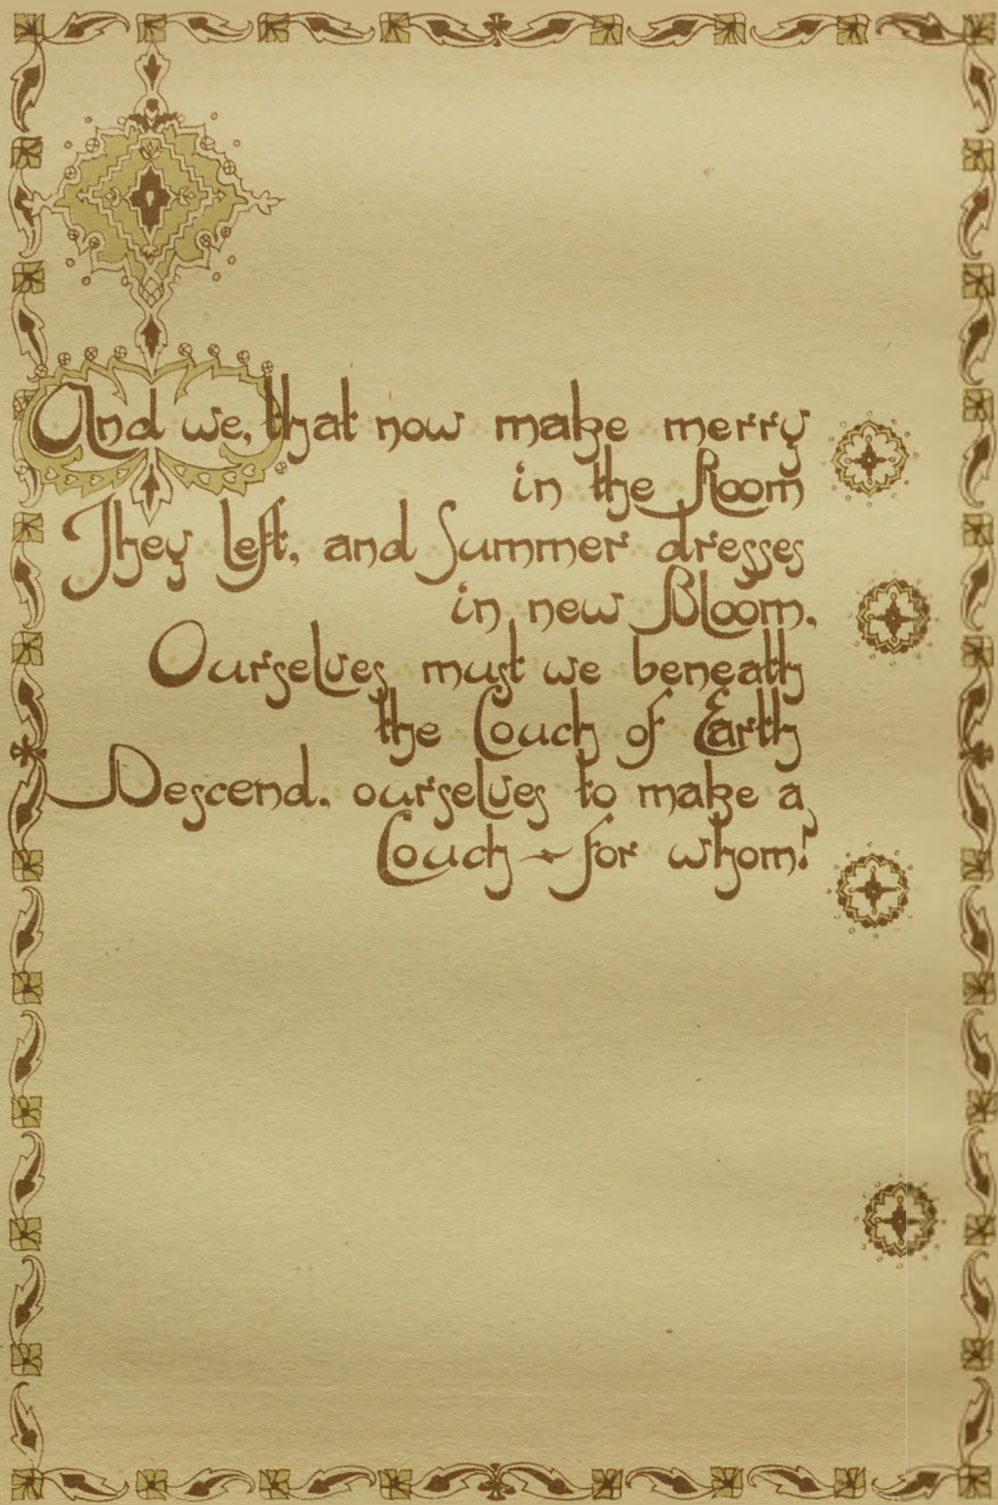 And we, that now make merry
in the Room
They left, and Summer dresses
in new Bloom,
Ourselves must we beneath
the Couch of Earth
Descend, ourselves to make a
Couch — for whom!